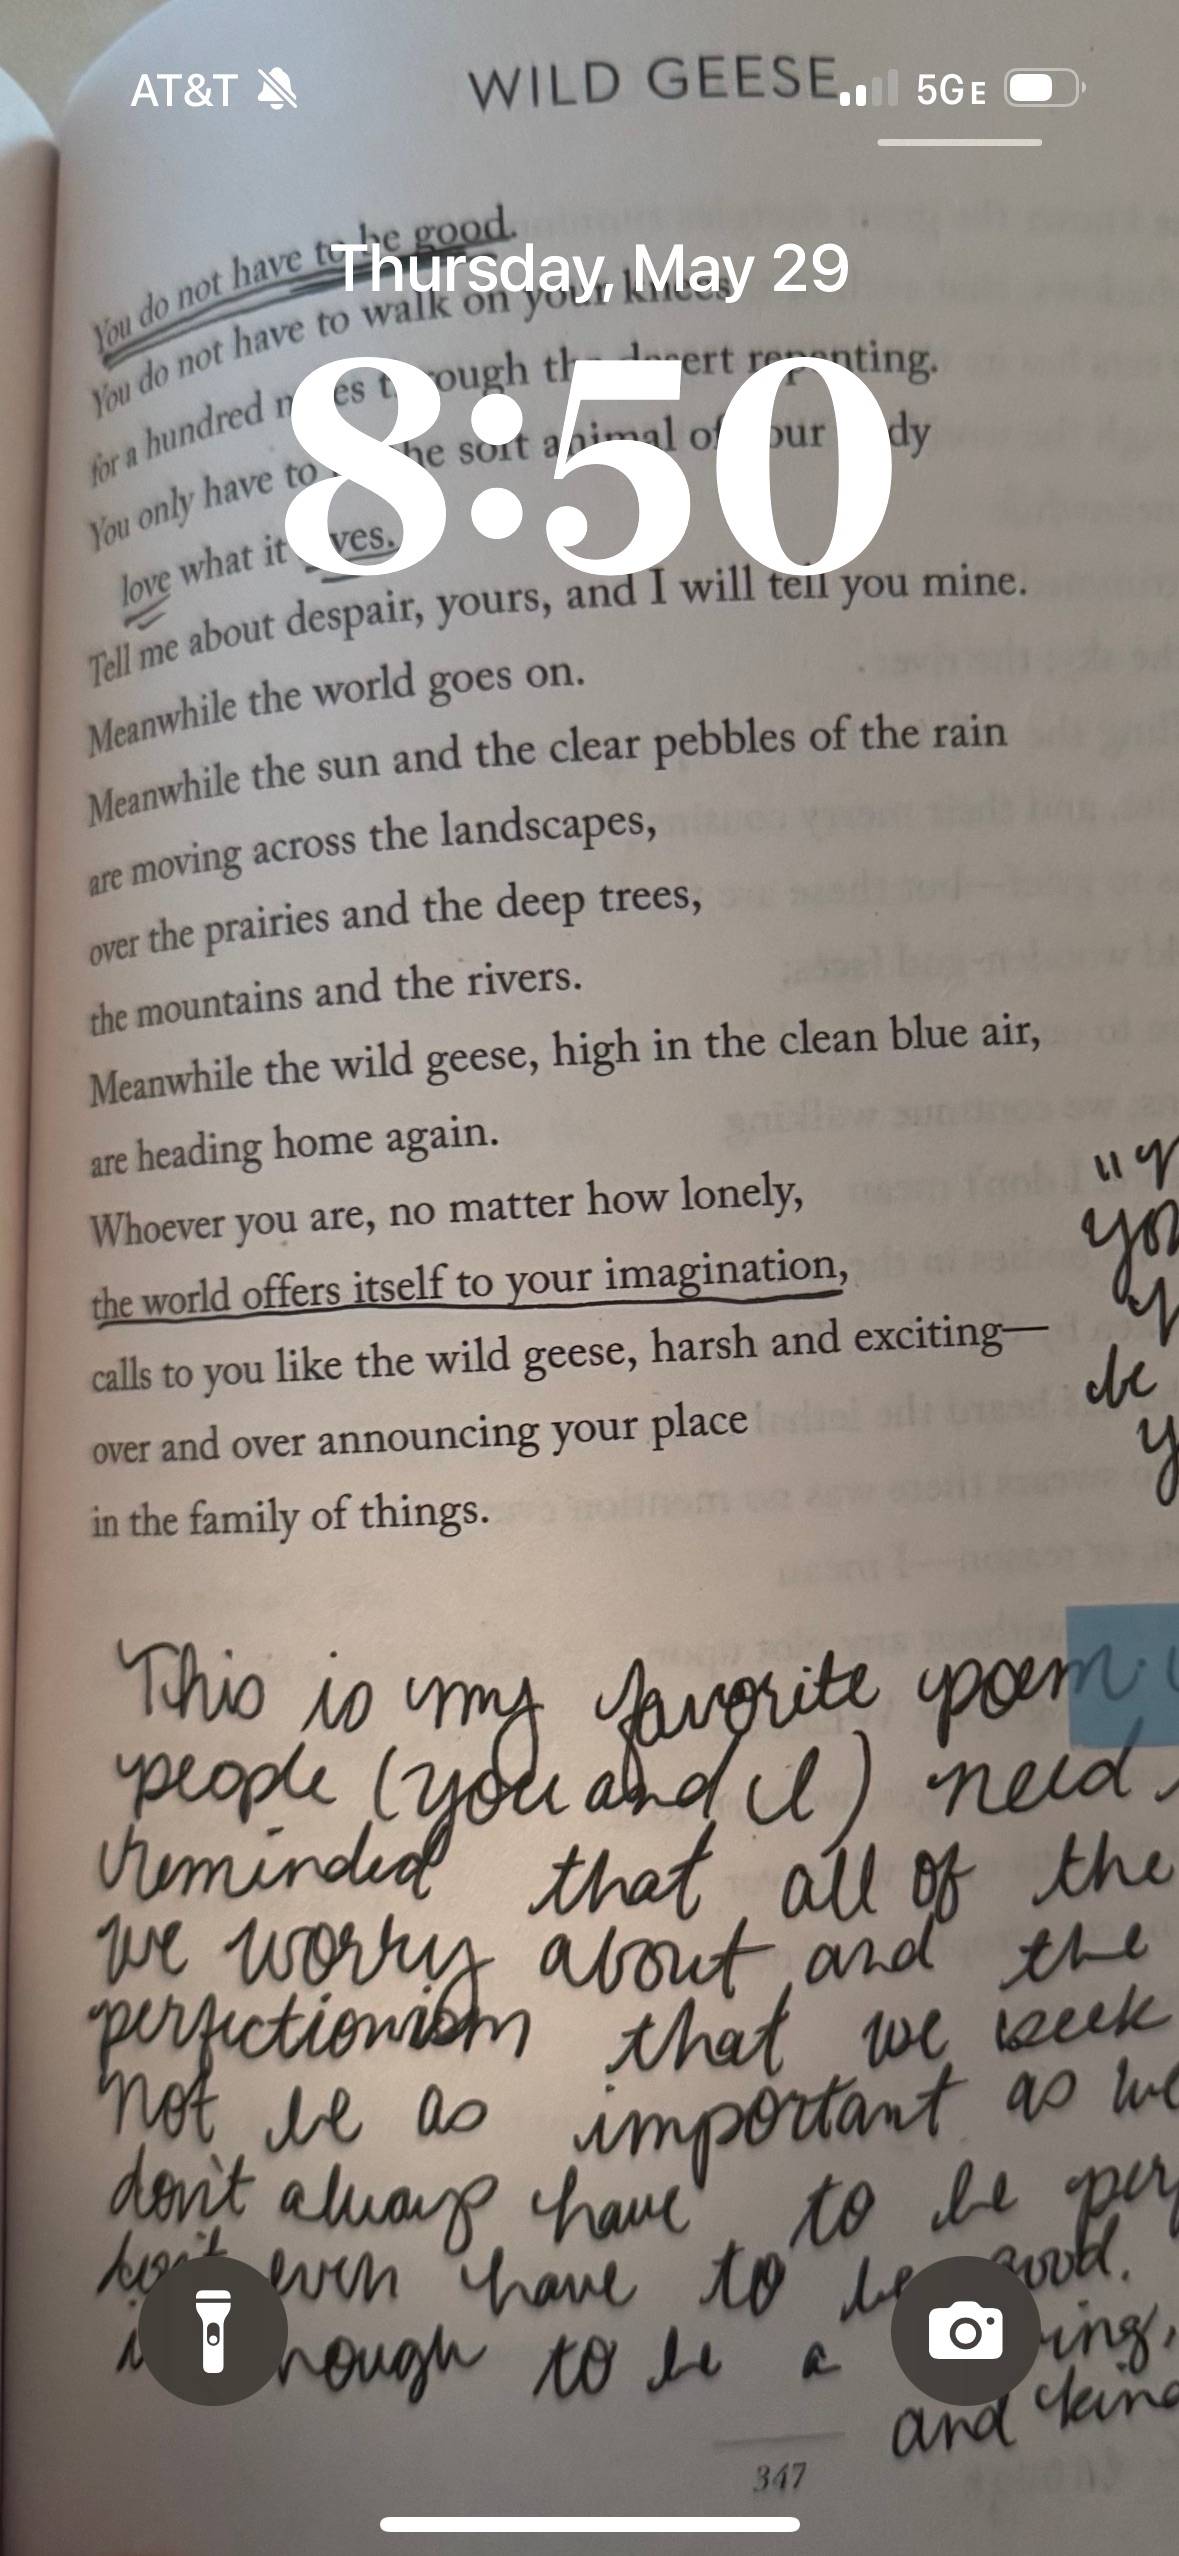 AT&T WILD GEESE 5GE
Thursday, May 29
8:50
You do not have to be good.
You do not have to walk on your knees
for a hundred through the desert repenting.
You only have to the soft animal of your body
love what it
Tell me about despair, yours, and I will tell you mine.
Meanwhile the world goes on.
Meanwhile the sun and the clear pebbles of the rain
are moving across the landscapes,
over the prairies and the deep trees,
the mountains and the rivers.
Meanwhile the wild geese, high in the clean blue air,
are heading home again.
Whoever you are, no matter how lonely,
the world offers itself to your imagination,
calls to you like the wild geese, harsh and exciting—
over and over announcing your place
in the family of things.
This is my favorite poem.
people (you and I) need
reminded that all of the
we worry about and the
perfectionism that we seek
not be as important as we
don't always have to be
don't even have to be good.
to be a
and kind
347